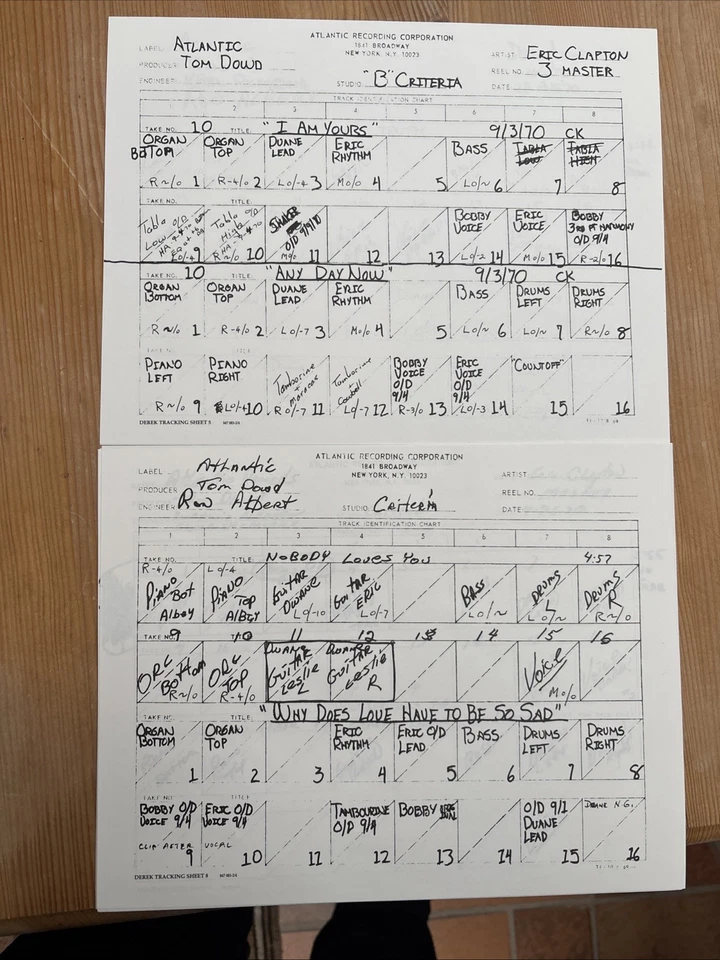 ATLANTIC RECORDING CORPORATION
1841 BROADWAY
NEW YORK, N.Y. 10023
LABEL ATLANTIC
PRODUCER TOM DOWD
ENGINEER
STUDIO "B" CRITERIA
ARTIST ERIC CLAPTON
REEL NO. 3 MASTER
DATE
TRACK IDENTIFICATION CHART
1 2 3 4 5 6 7 8
TAKE NO. 10 TITLE: "I AM YOURS" 9/3/70 CK
ORGAN BOTTOM R~/0 1
ORGAN TOP R-4/0 2
DUANE LEAD L0/-4 3
ERIC RHYTHM M0/0 4
5
BASS L0/~ 6
TABLA LOW 7
TABLA HIGH 8
Tabla Low O/D 9
Tabla High O/D 10
SHAKER O/D 9/9/70 M0/0 11
12
13
BOBBY VOICE L0/-2 14
ERIC VOICE M0/0 15
BOBBY 3RD PT HARMONY O/D 9/4 R-2/0 16
10 TITLE: "ANY DAY NOW" 9/3/70 CK
ORGAN BOTTOM R~/0 1
ORGAN TOP R-4/0 2
DUANE LEAD L0/-7 3
ERIC RHYTHM M0/0 4
5
BASS L0/~ 6
DRUMS LEFT L0/~ 7
DRUMS RIGHT R~/0 8
PIANO LEFT R~/0 9
PIANO RIGHT L0/-4 10
Tambourine + Maracas R0/-7 11
Tambourine + Cowbell L0/-7 12
BOBBY VOICE O/D 9/4 R-3/0 13
ERIC VOICE O/D 9/4 L0/-3 14
"COUNTOFF" 15
16
DEREK TRACKING SHEET 8
ATLANTIC RECORDING CORPORATION
1841 BROADWAY
NEW YORK, N.Y. 10023
LABEL Atlantic
PRODUCER Tom Dowd
ENGINEER Ron Albert
STUDIO Criteria
ARTIST
REEL NO.
DATE
TRACK IDENTIFICATION CHART
1 2 3 4 5 6 7 8
TAKE NO. TITLE: NOBODY LOVES YOU 4:57
R-4/0 PIANO BOT Alboy
L0/-4 PIANO TOP AlBoy
GUITAR DUANE L0/-10
GUITAR ERIC L0/-7
BASS L0/~
DRUMS L L0/~
DRUMS R R~/0
TAKE NO. 9 10 11 12 13 14 15 16
ORG BOTTOM R~/0
ORG TOP R-4/0
DUANE GUITAR Leslie L
DUANE GUITAR Leslie R
Voice M0/0
TAKE NO. TITLE: "WHY DOES LOVE HAVE TO BE SO SAD"
ORGAN BOTTOM 1
ORGAN TOP 2
3
ERIC RHYTHM 4
ERIC O/D LEAD 5
BASS 6
DRUMS LEFT 7
DRUMS RIGHT 8
BOBBY O/D VOICE 9/4 CLIP AFTER 9
ERIC O/D VOICE 9/4 VOCAL 10
11
TAMBOURINE O/D 9/4 12
BOBBY 13
14
O/D 9/1 DUANE LEAD 15
DUANE N.G. 16
DEREK TRACKING SHEET 8